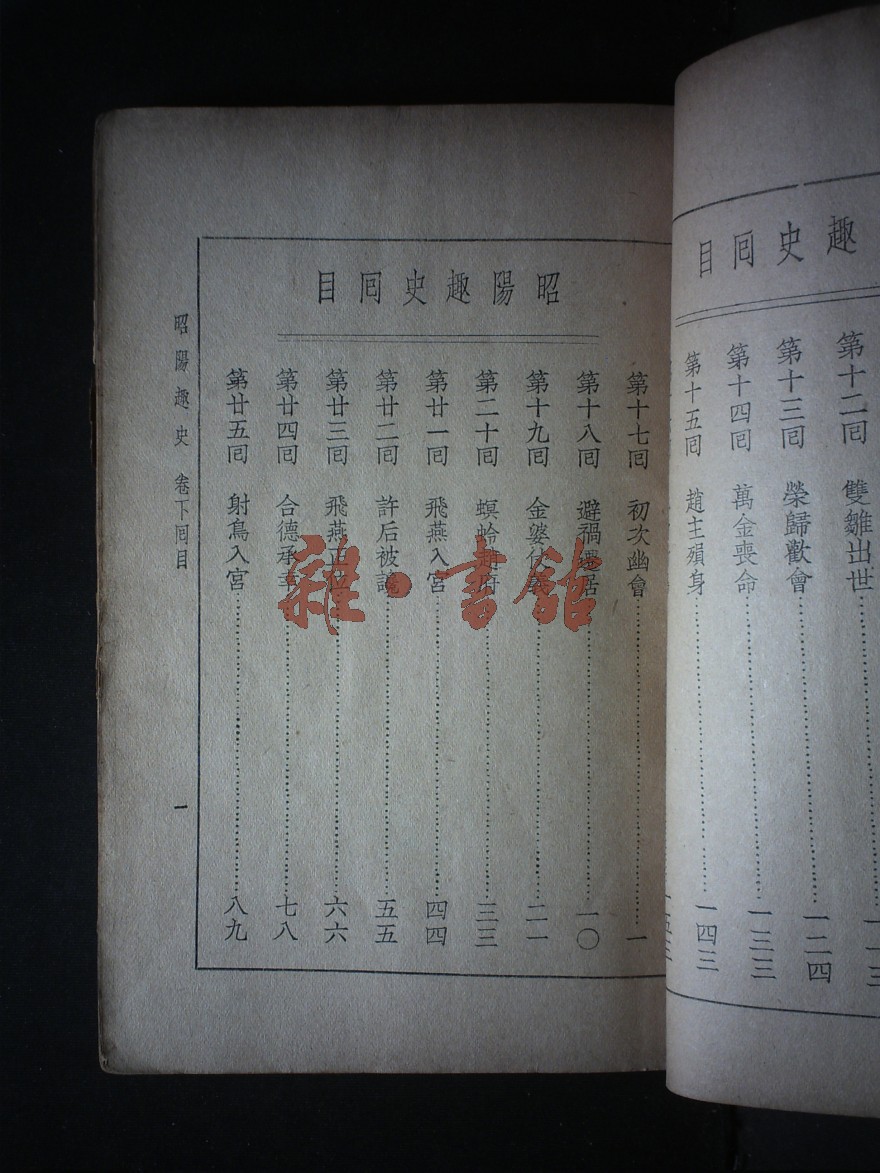 趣史囘目
第十二囘 雙雛出世
第十三囘 榮歸歡會 一二四
第十四囘 萬金喪命 一三三
第十五囘 趙主殞身 一四三
昭陽趣史囘目
第十七囘 初次幽會 一
第十八囘 避禍遷居 一〇
第十九囘 金婆仗義 二一
第二十囘 螟蛉趙府 三三
第廿一囘 飛燕入宮 四四
第廿二囘 許后被讒 五五
第廿三囘 飛燕正 六六
第廿四囘 合德承幸 七八
第廿五囘 射鳥入宮 八九
昭陽趣史 卷下囘目 一
雜·書館